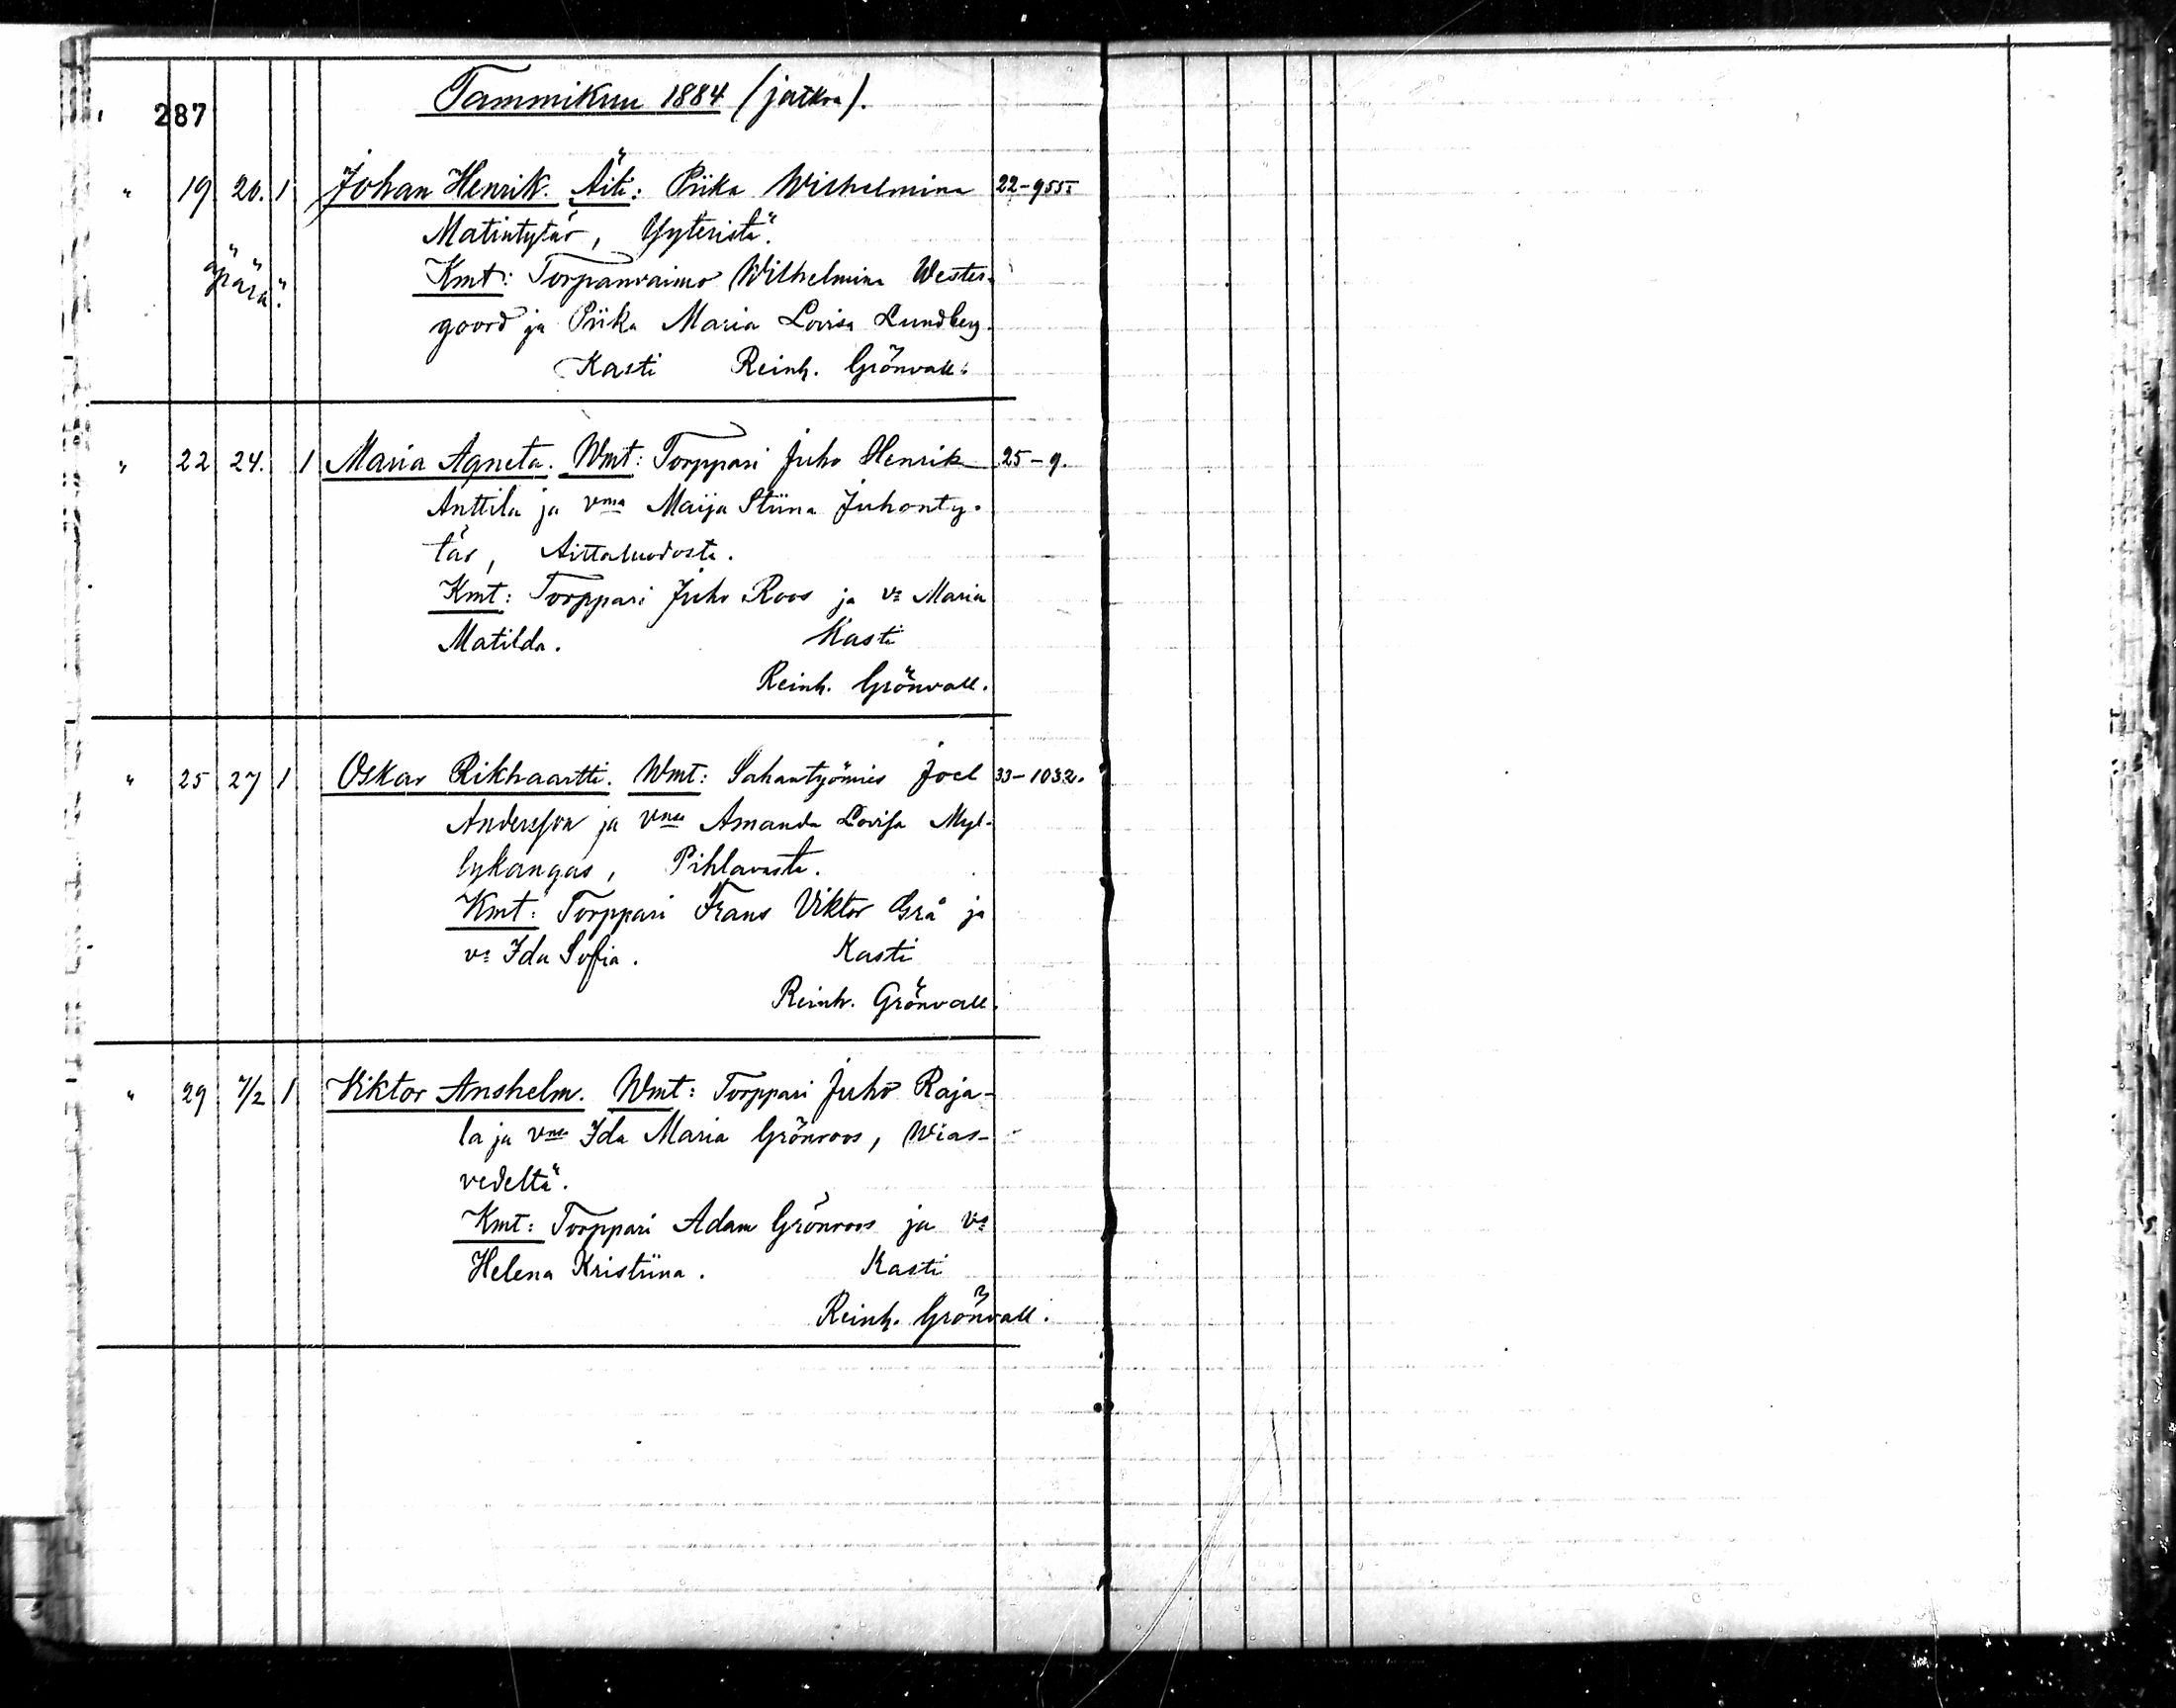 287
Tammikuu 1884 (jatkoa).
" 19 20. 1 Johan Henrik. Äiti: Piika Wilhelmina 22-955.
Matintytär, Yyteristä.
äpärä. Kmt: Torpanvaimo Wilhelmina Wester-
goord ja Piika Maria Lovisa Lundberg.
Kasti Reinh. Grönvall.
" 22 24. 1 Maria Agneta. Wmt: Torppari Juho Henrik 25-9.
Anttila ja vma Maija Stiina Juhonty-
tär, Aittaluodosta.
Kmt: Torppari Juho Roos ja va Maria
Matilda. Kasti
Reinh. Grönvall.
" 25 27 1 Oskar Rikhaartti. Wmt: Sahantyömies Joel 33-1032.
Andersson ja vma Amanda Lovisa Myl-
lykangas, Pihlavasta.
Kmt: Torppari Frans Viktor Grå ja
va Ida Sofia. Kasti
Reinh. Grönvall.
" 29 7/2 1 Viktor Anshelm. Wmt: Torppari Juho Raja-
la ja vma Ida Maria Grönroos, Wias-
vedeltä.
Kmt: Torppari Adam Grönroos ja va
Helena Kristiina. Kasti
Reinh. Grönvall.